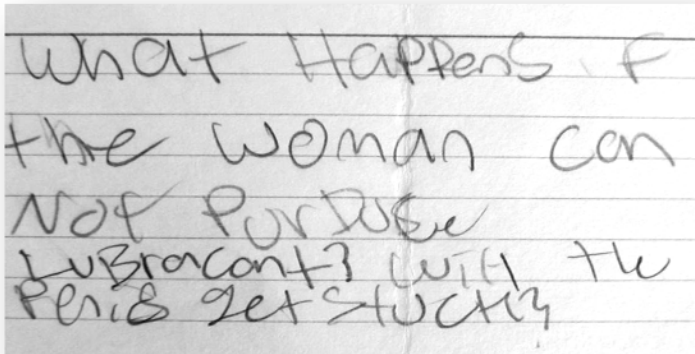 What Happens if
the woman can
Not Purduse
LuBracant? will the
Penis get stuck?